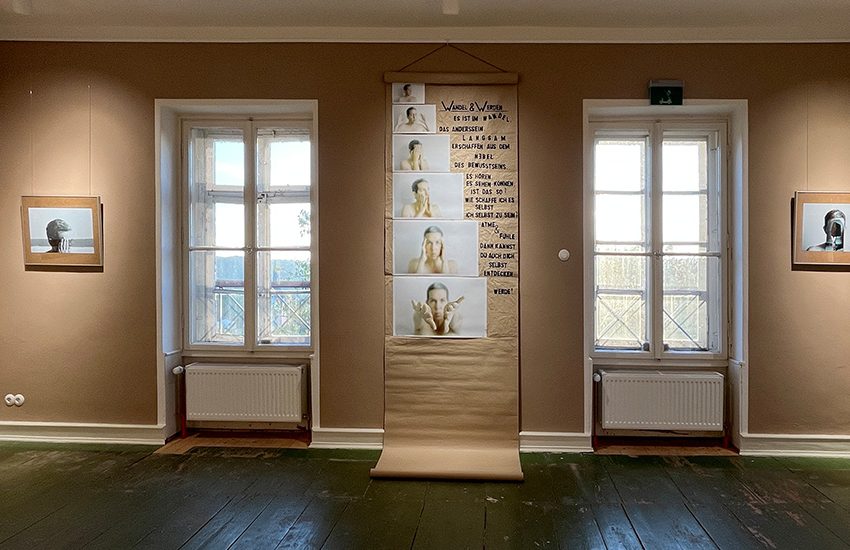 WANDEL & WERDEN
ES IST IM WANDEL,
DAS ANDERSSEIN.
LANGSAM
ERSCHAFFEN AUS DEM
NEBEL
DES BEWUSSTSEINS.
ES HÖREN,
ES SEHEN KÖNNEN
IST DAS SO?
WIE SCHAFFE ICH ES
SELBST
ICH SELBST ZU SEIN?
ATME
&
FÜHLE
DANN KANNST
DU AUCH DICH
SELBST
ENTDECKEN.
WERDE!